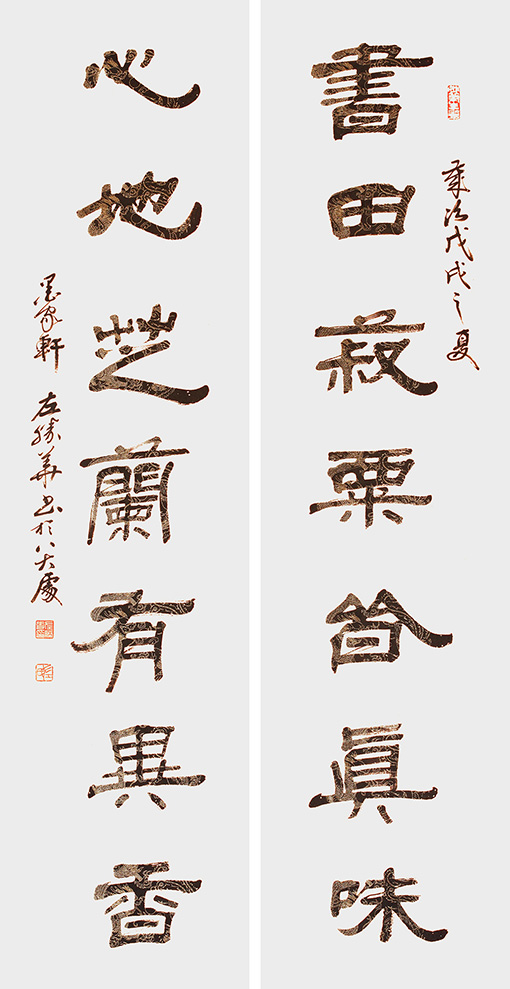 歲次戊戌之夏
書田菽粟皆眞味
心地芝蘭有異香
墨家軒 左勝華書於八大處